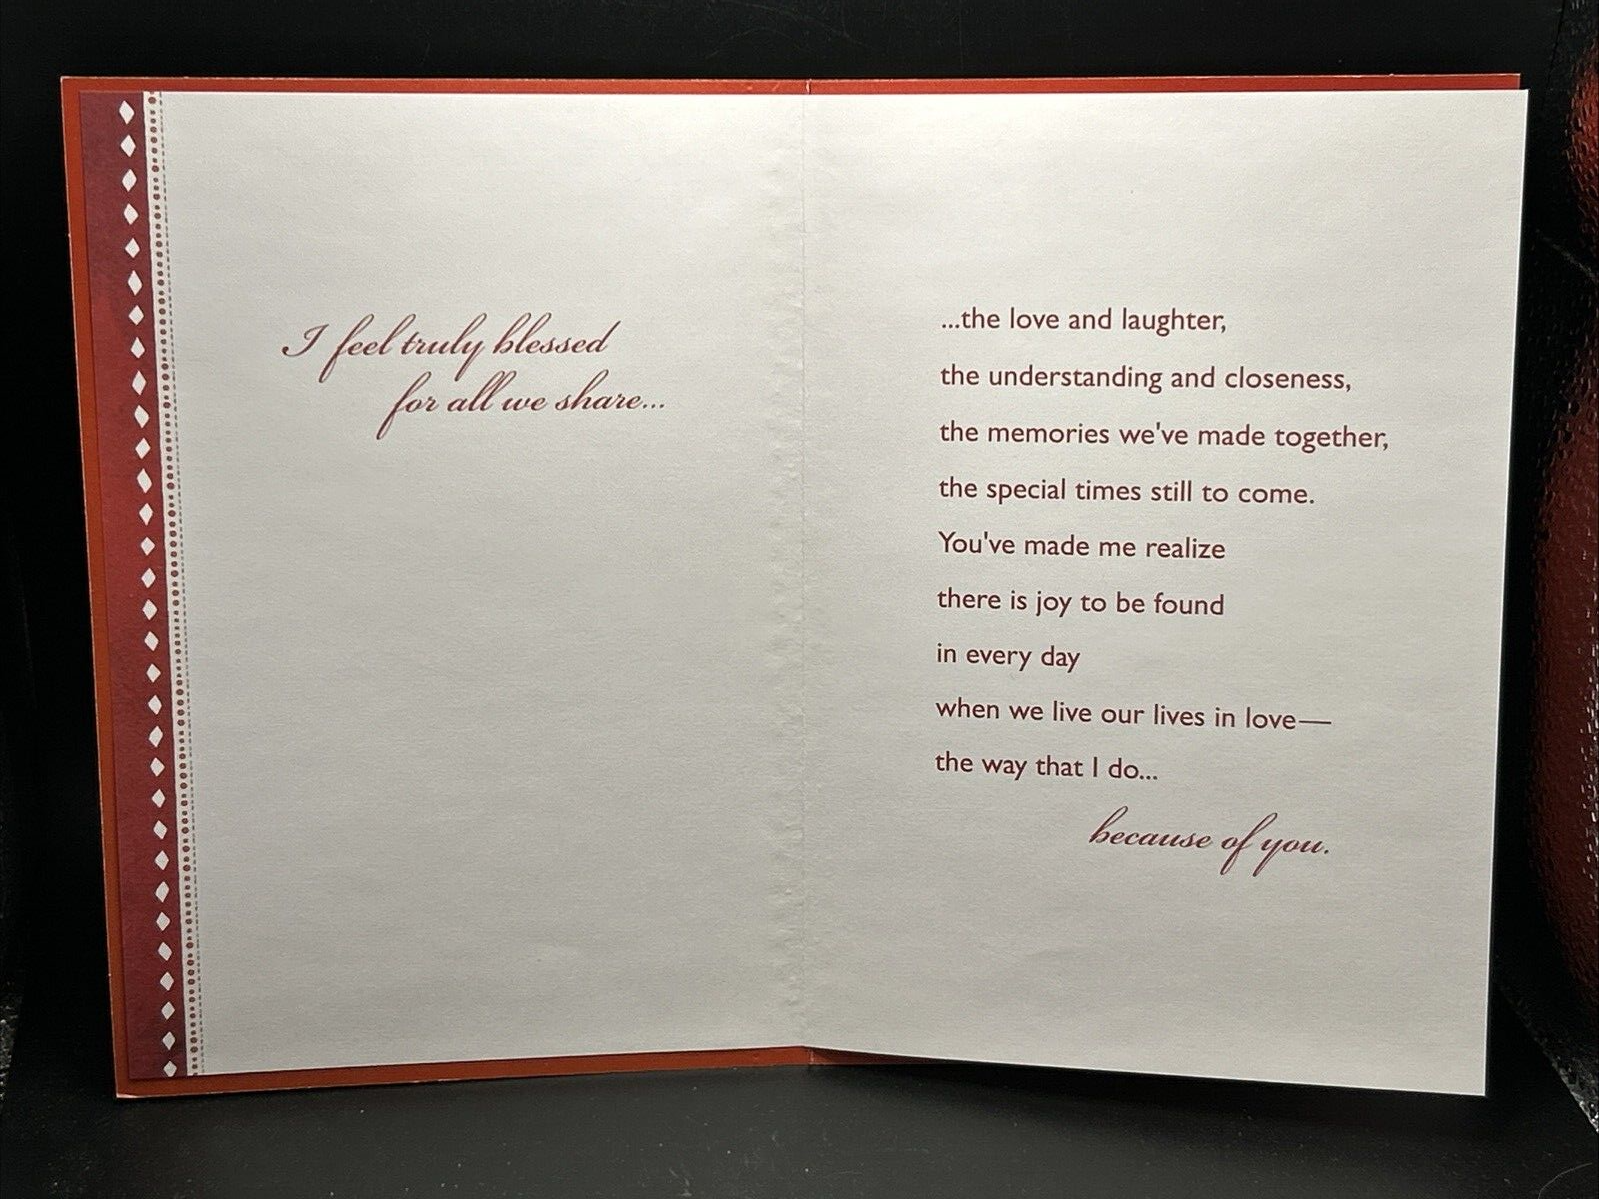 I feel truly blessed
for all we share...
...the love and laughter,
the understanding and closeness,
the memories we've made together,
the special times still to come.
You've made me realize
there is joy to be found
in every day
when we live our lives in love—
the way that I do...
because of you.